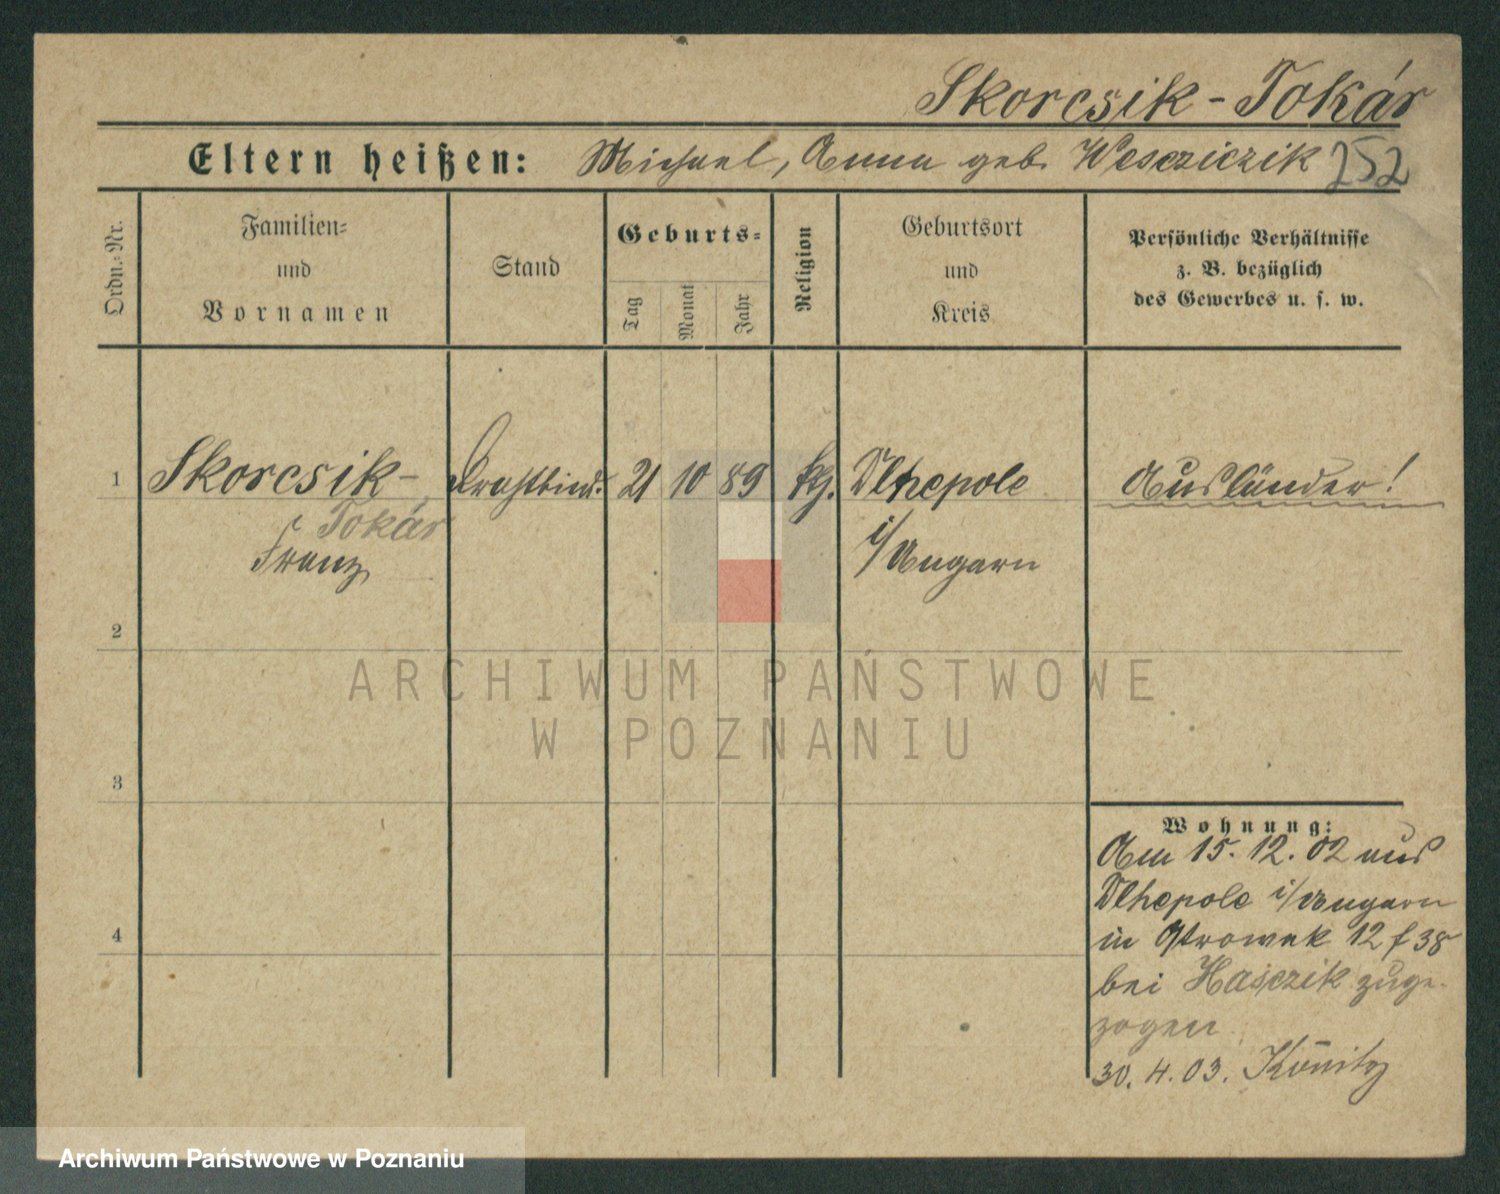 Skorcsik - Tokár
Eltern heißen: Michael, Anna geb. Wescziczik 252
Ordn.-Nr.
Familien-
und
Vornamen
Stand
Geburts-
Tag
Monat
Jahr
Religion
Geburtsort
und
Kreis
Persönliche Verhältnisse
z. B. bezüglich
des Gewerbes u. s. w.
1 Skorcsik- Drahtbind. 21 10 89 kg. Dlhepole Ausländer!
Tokár
Franz
i/Ungarn
2
ARCHIWUM PAŃSTWOWE
W POZNANIU
3
4
Wohnung:
Am 15. 12. 02 aus
Dlhepole i/Ungarn
in Ostrowek 12 f 38
bei Hasczik zuge-
zogen
30. 4. 03. Könitz
Archiwum Państwowe w Poznaniu